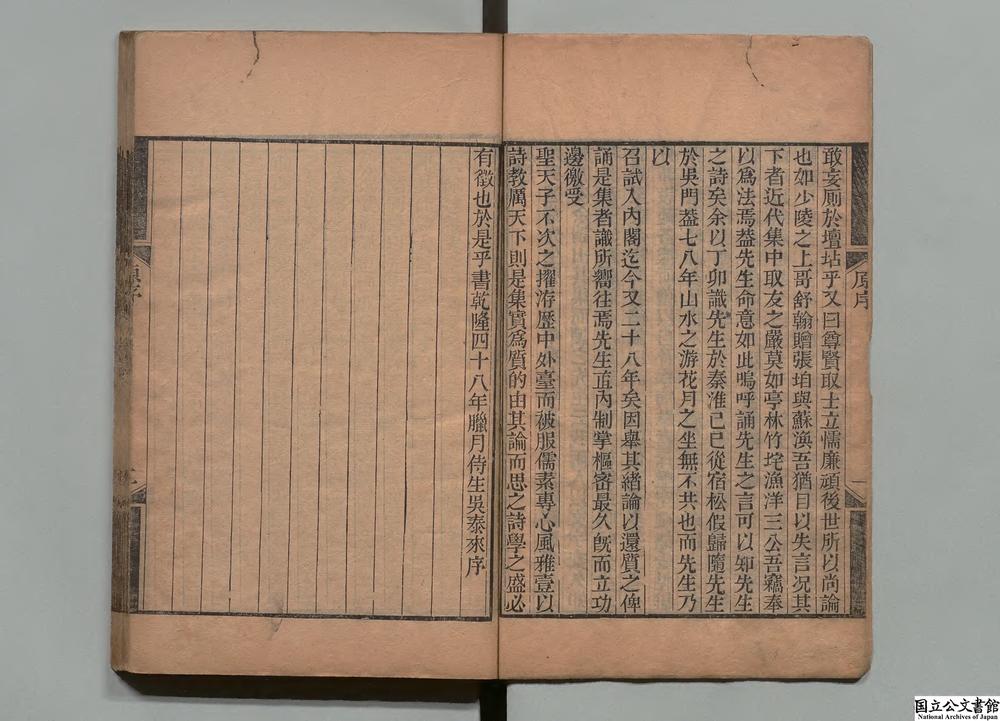 敢妄厠於壇坫乎又曰尊賢取士立懦廉頑後世所以尚論
也如少陵之上哥舒翰贈張垍與蘇渙吾猶目以失言况其
下者近代集中取友之嚴莫如亭林竹垞漁洋三公吾竊奉
以爲法焉葢先生命意如此嗚呼誦先生之言可以知先生
之詩矣余以丁卯識先生於秦淮己巳從宿松假歸隨先生
於吳門葢七八年山水之游花月之坐無不共也而先生乃
以
召試入內閣迄今又二十八年矣因舉其緒論以還質之俾
誦是集者識所嚮往焉先生直內制掌樞密最久旣而立功
邊徼受
聖天子不次之擢游歷中外臺而被服儒素專心風雅壹以
詩教厲天下則是集實爲質的由其論而思之詩學之盛必
原序
一
有徵也於是乎書乾隆四十八年臘月侍生吳泰來序
原序
国立公文書館
National Archives of Japan